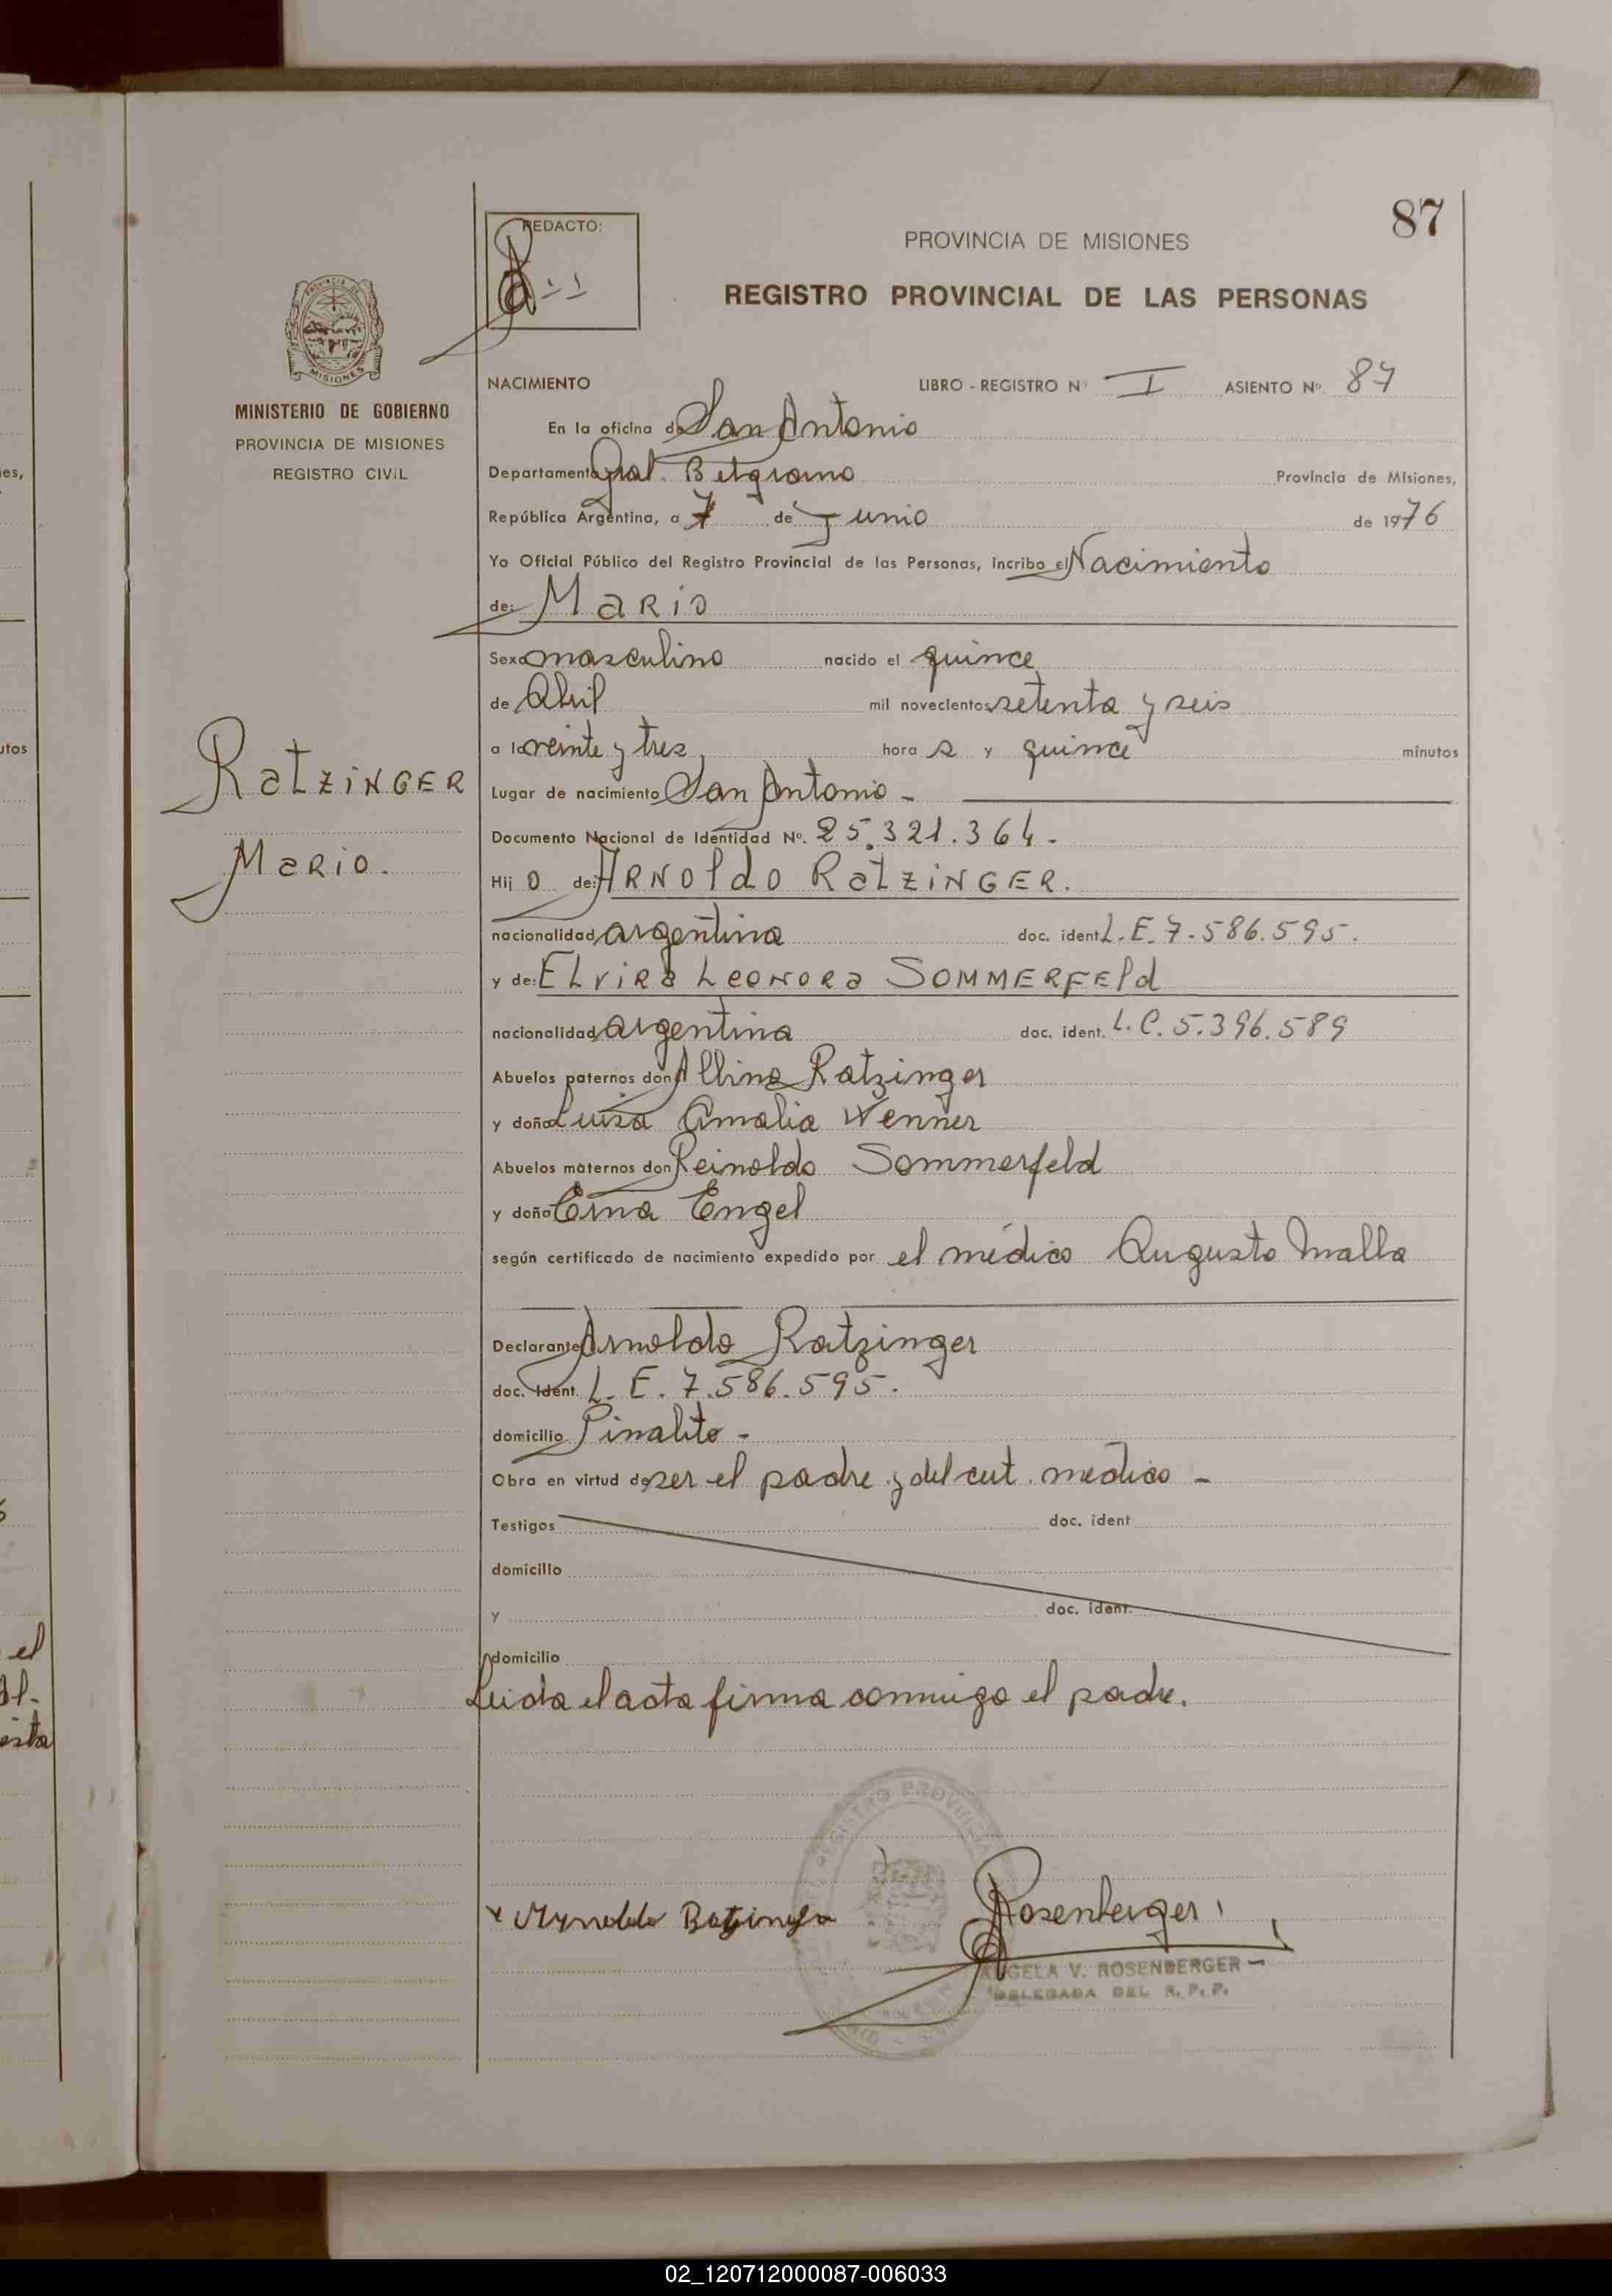 87
REDACTO:
PROVINCIA DE MISIONES
REGISTRO PROVINCIAL DE LAS PERSONAS
MISIONES
MINISTERIO DE GOBIERNO
PROVINCIA DE MISIONES
REGISTRO CIVIL
NACIMIENTO LIBRO - REGISTRO Nº I ASIENTO Nº. 87
En la oficina de San Antonio
Departamento Gral. Belgrano Provincia de Misiones,
República Argentina, a 7 de Junio de 1976
Yo Oficial Público del Registro Provincial de las Personas, incribo el Nacimiento
de: Mario
Sexo masculino nacido el quince
de Abril mil novecientos setenta y seis
a la veinte y tres hora s y quince minutos
Ratzinger
Mario.
Lugar de nacimiento San Antonio -
Documento Nacional de Identidad Nº. 25.321.364.-
Hij o de: Arnoldo Ratzinger.
nacionalidad argentina doc. ident. L.E. 7.586.595.
y de: Elvira Leonora Sommerfeld
nacionalidad argentina doc. ident. L.C. 5.396.589
Abuelos paternos don Albino Ratzinger
y doña Luisa Amalia Wenner
Abuelos maternos don Reinoldo Sommerfeld
y doña Erna Engel
según certificado de nacimiento expedido por el médico Augusto Malla
Declarante Arnoldo Ratzinger
doc. ident. L.E. 7.586.595.
domicilio Pinalito -
Obra en virtud de ser el padre y del cert. médico -
Testigos doc. ident
domicilio
y doc. ident.
domicilio
Leida el acta firma conmigo el padre.
Rosenberger
ANGELA V. ROSENBERGER
DELEGADA DEL R. P. P.
es,
utos
el
esta
02_120712000087-006033